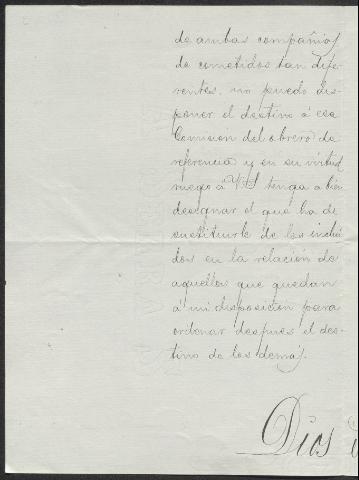 de ambas compañias
de cometidos tan dife-
rentes, no puedo dis-
poner el destino á esa
Comisión del obrero de
referencia y en su virtud
ruego á VS tenga a bien
designar el que ha de
sustituirle de los inclui
dos en la relación de
aquellos que quedan
á mi disposición para
ordenar despues el des-
tino de los demás.
Dios